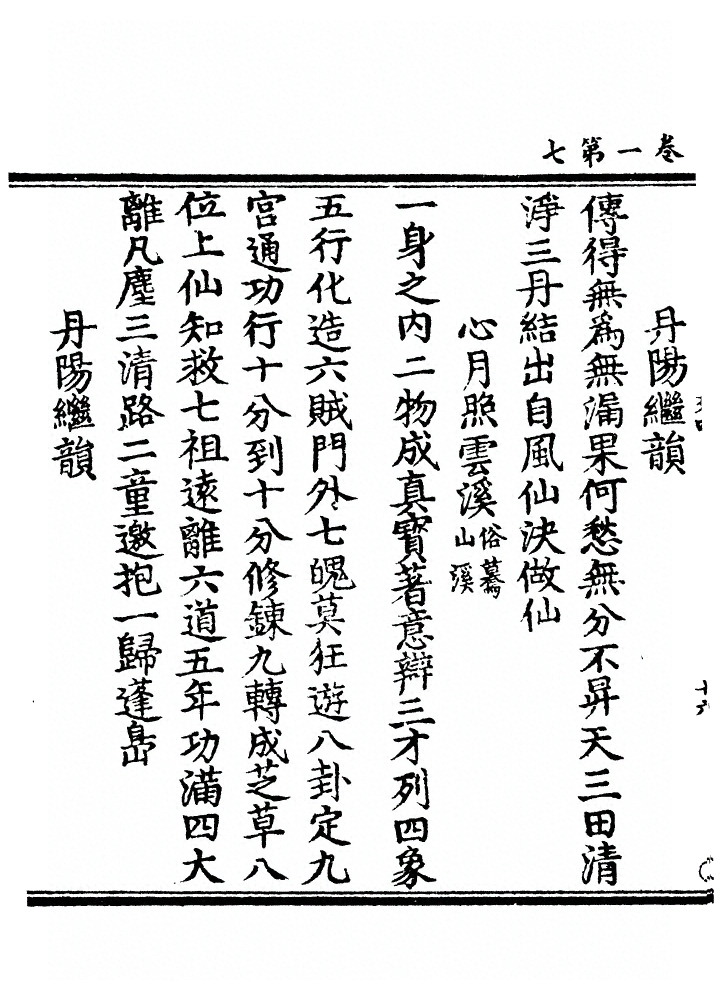 卷一第七
十六
丹陽繼韻
傳得無爲無漏果何愁無分不昇天三田清
淨三丹結出自風仙決做仙
心月照雲溪俗驀山溪
一身之内二物成真寳著意辯三才列四象
五行化造六賊門外七魄莫狂遊八卦定九
宫通功行十分到十分修鍊九轉成芝草八
位上仙知救七祖遠離六道五年功滿四大
離凡塵三清路二童邀抱一歸蓬島
丹陽繼韻